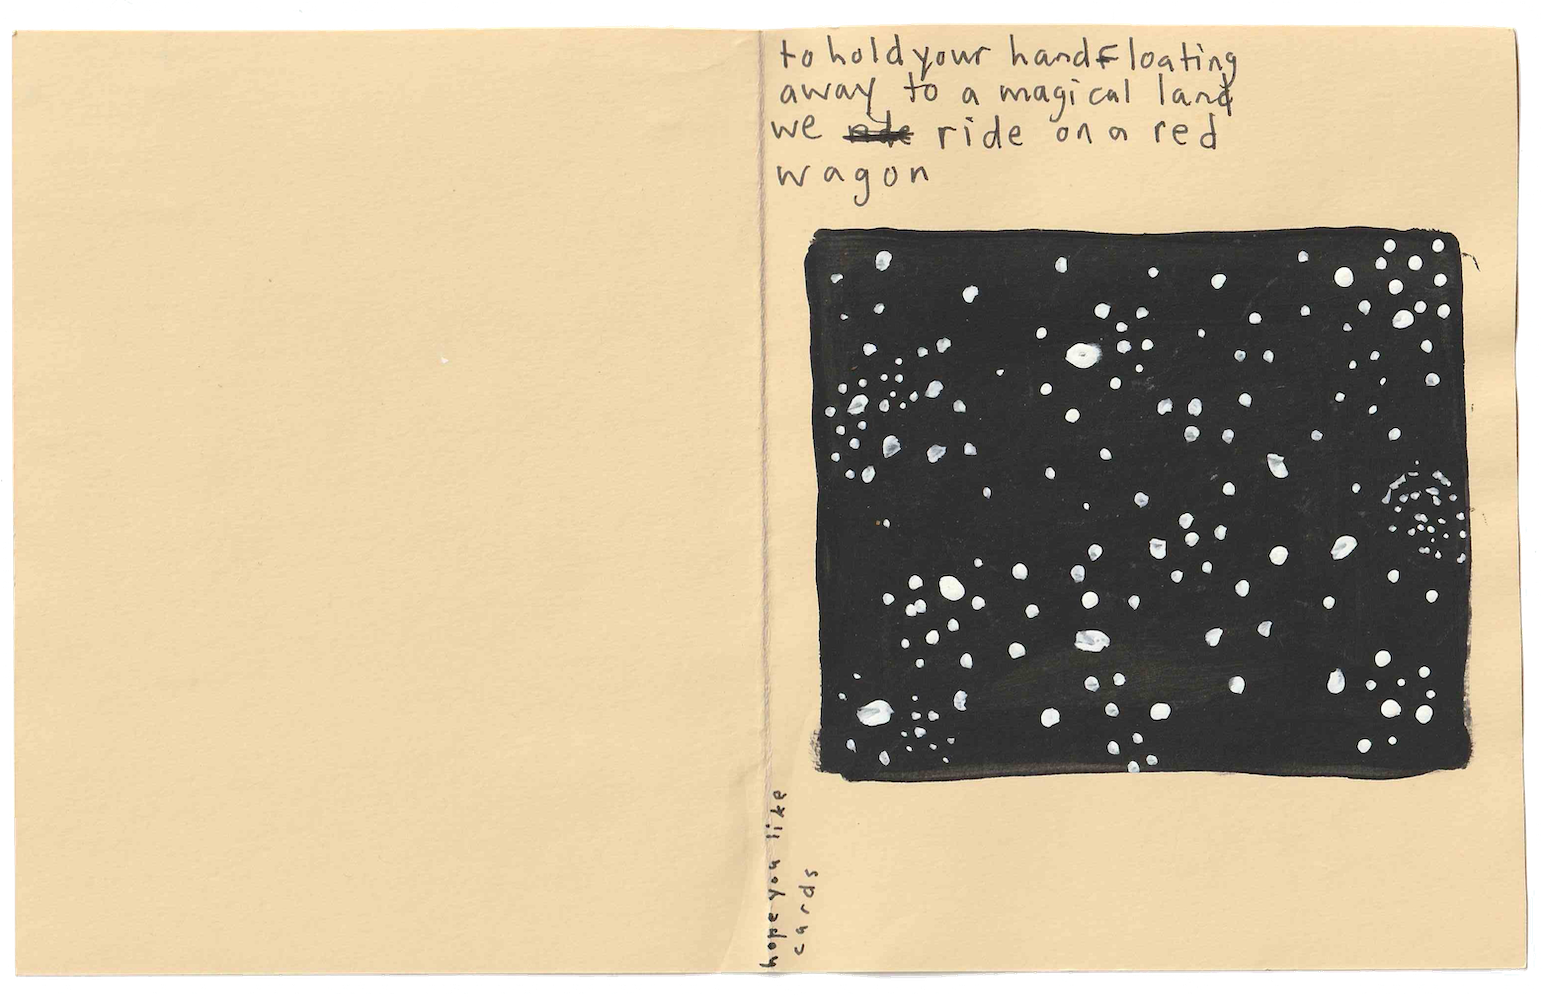 to hold your hand floating
away to a magical land
we ride on a red
wagon
hope you like
cards